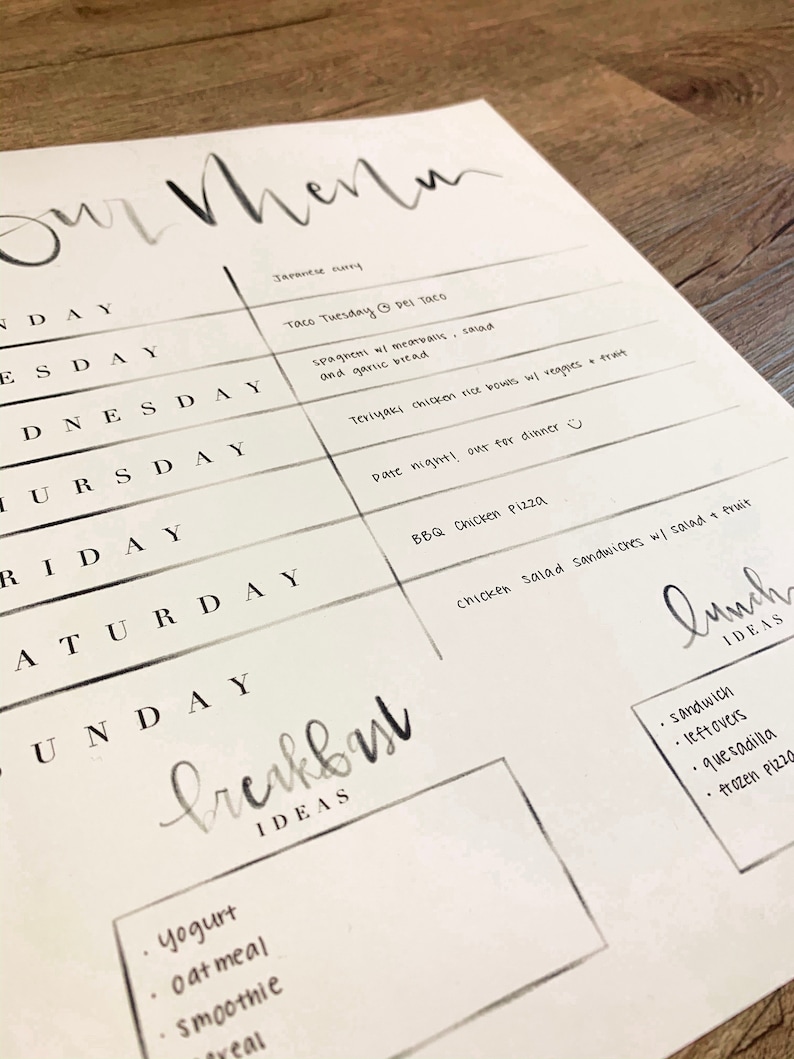 Our Menu
NDAY
Japanese curry
ESDAY
Taco Tuesday @ Del Taco
DNESDAY
spaghetti w/ meatballs, salad
and garlic bread
HURSDAY
Teriyaki chicken rice bowls w/ veggies + fruit
RIDAY
Date night! out for dinner ☺
ATURDAY
BBQ Chicken Pizza
UNDAY
chicken salad sandwiches w/ salad + fruit
breakfast
IDEAS
· yogurt
· oatmeal
· smoothie
ereal
lunch
IDEAS
· sandwich
· leftovers
· quesadilla
· frozen pizza